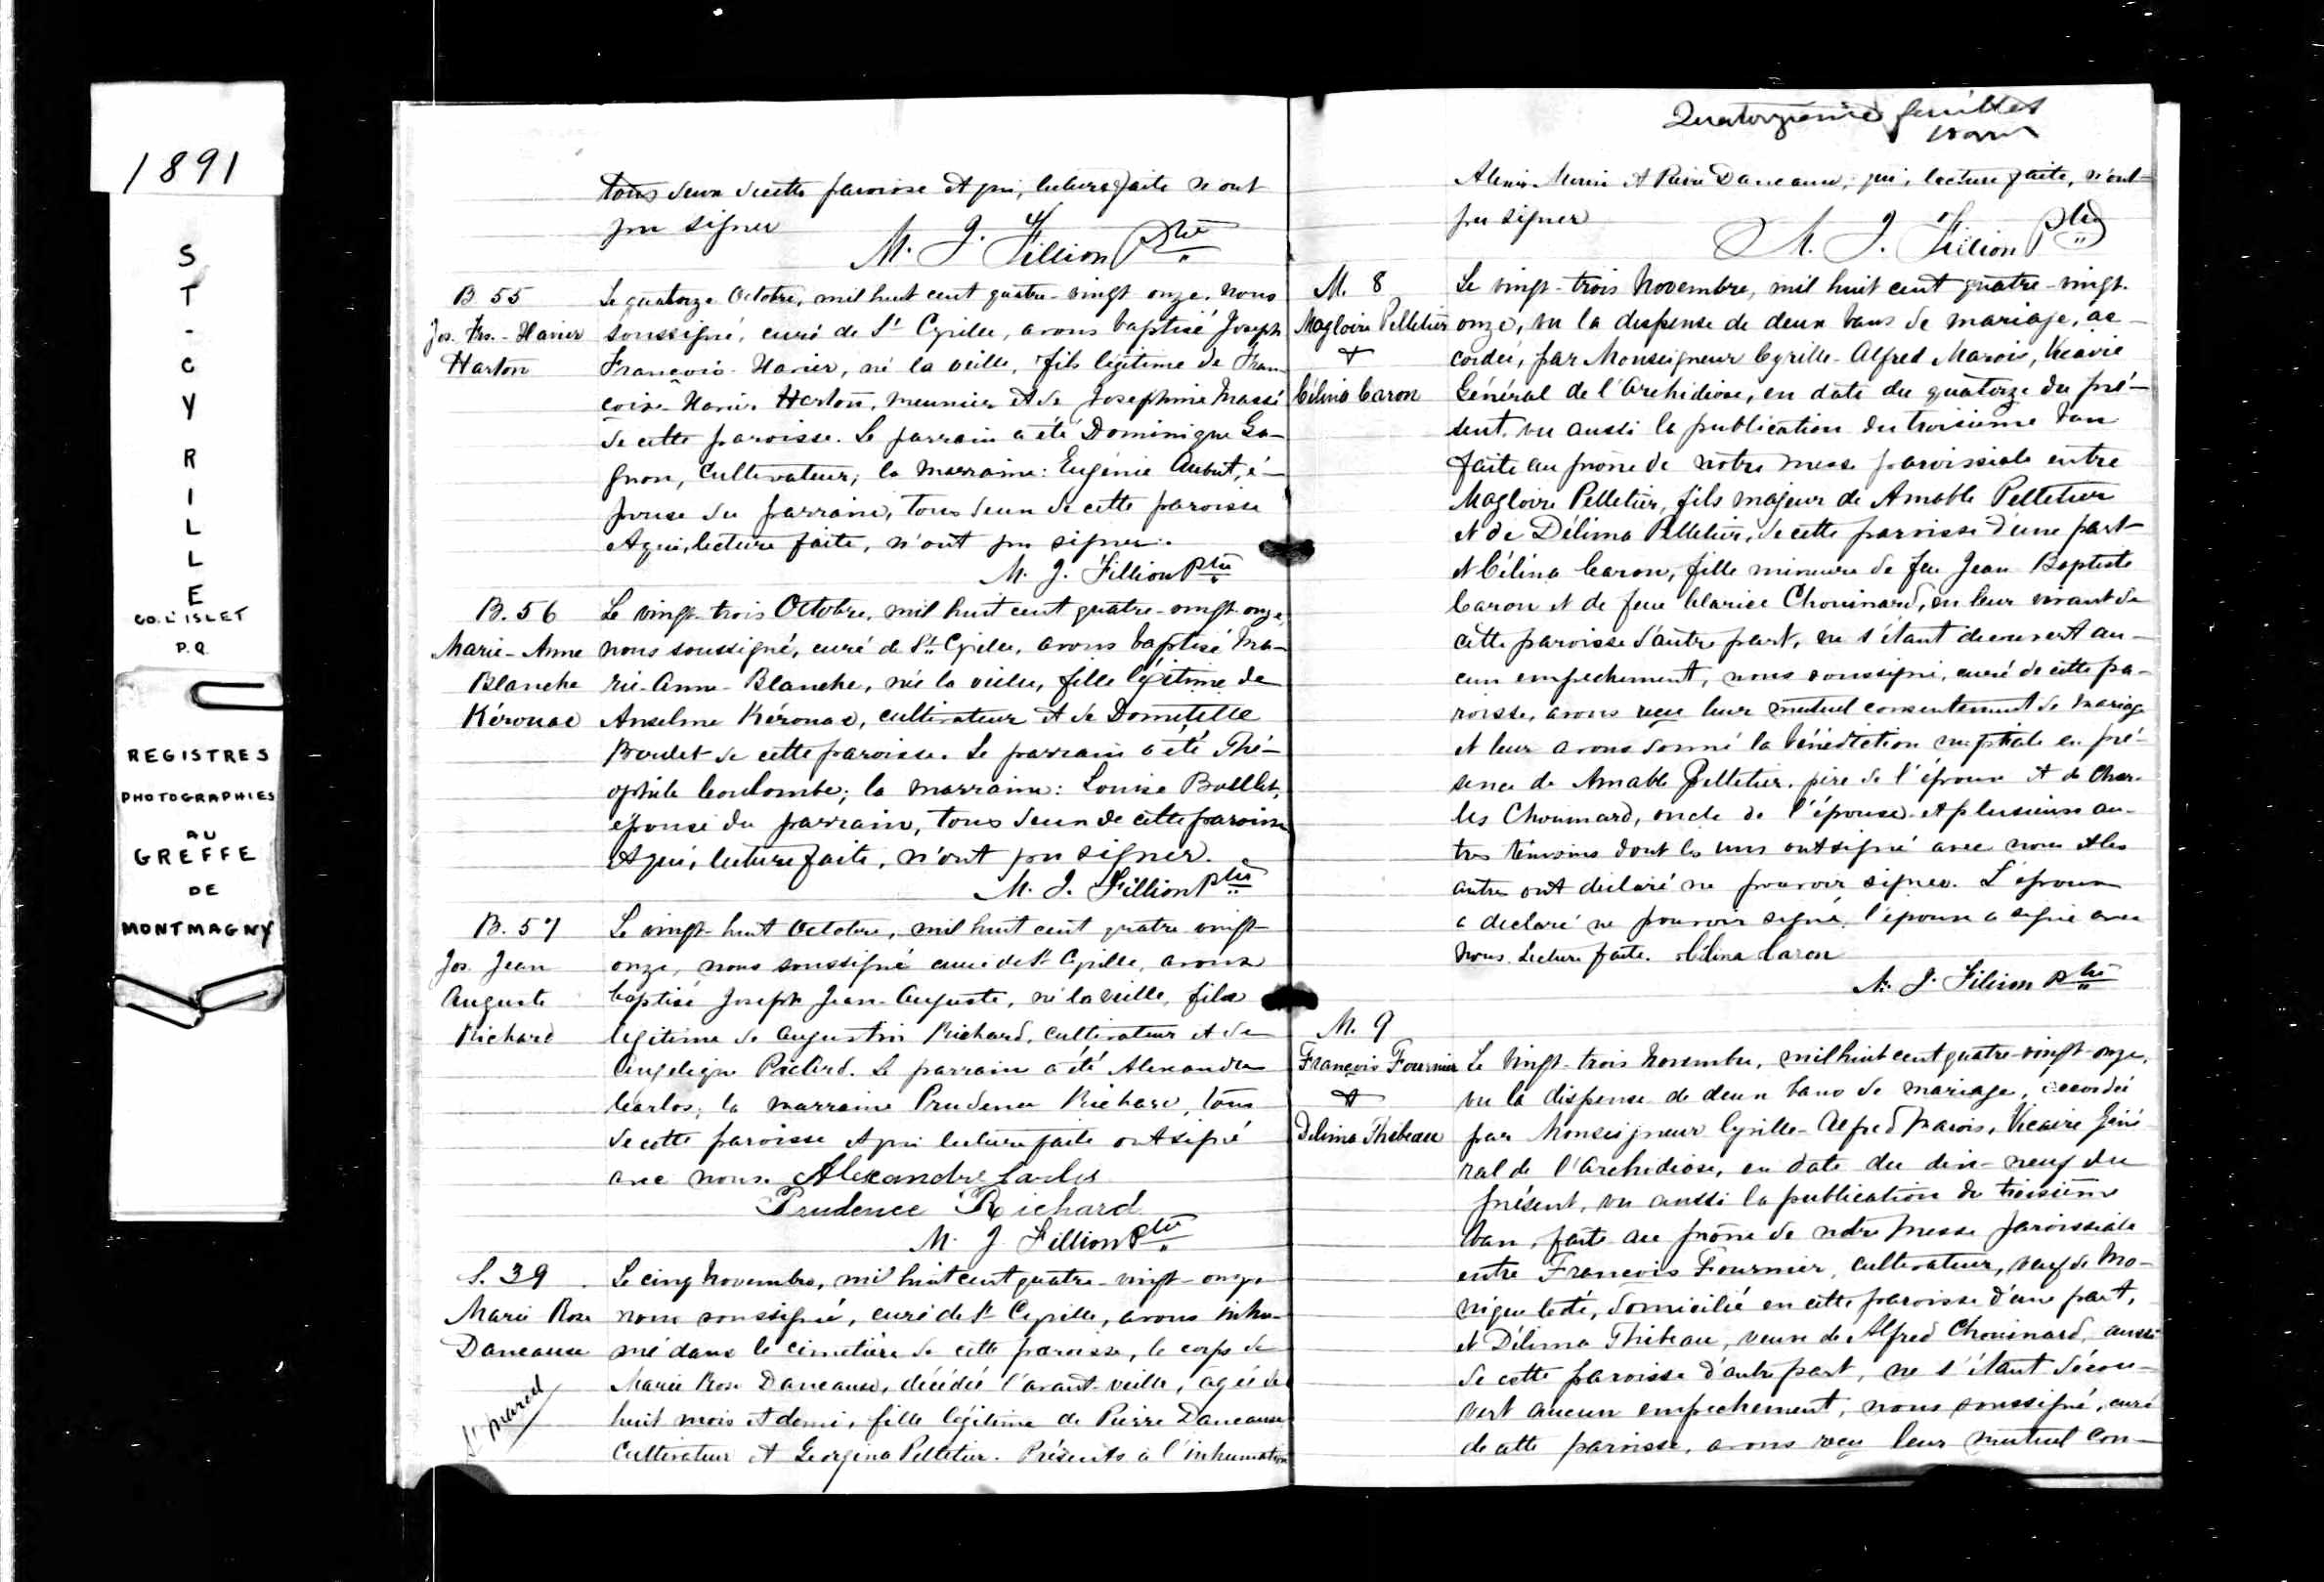 1891
ST-CYRILLE
CO. L'ISLET
P.Q.
REGISTRES
PHOTOGRAPHIES
AU
GREFFE
DE
MONTMAGNY
tous deux de cette paroisse et qui, lecture faite n'ont
pu signer
M. J. Fillion Ptre
B 55
Jos. Frs.-Xavier
Harton
Le quatorze Octobre, mil huit cent quatre-vingt onze, nous
soussigné, curé de St Cyrille, avons baptisé Joseph
François-Xavier, né la veille, fils légitime de Fran-
çois-Xavier Harton, meunier et de Josephine Massé
de cette paroisse. Le parrain a été Dominique Ga-
gnon, Cultivateur; la marraine: Eugénie Aubut, é-
pouse du parrain, tous deux de cette paroisse
et qui, lecture faite, n'ont pu signer.
M. J. Fillion Ptre
B. 56
Marie-Anne
Blanche
Kérouac
Le vingt-trois Octobre, mil huit cent quatre-vingt-onze,
nous soussigné, curé de St Cyrille, avons baptisé Ma-
rie-Anne-Blanche, née la veille, fille légitime de
Anselme Kérouac, cultivateur et de Domitille
Boulet de cette paroisse. Le parrain a été Thé-
ophile Coulombe; la marraine: Louise Boulet,
épouse du parrain, tous deux de cette paroisse
et qui, lecture faite, n'ont pu signer.
M. J. Fillion Ptre
B. 57
Jos. Jean
Auguste
Richard
Le vingt-huit Octobre, mil huit cent quatre vingt-
onze, nous soussigné curé de St Cyrille, avons
baptisé Joseph Jean-Auguste, né la veille, fils
legitime de Augustin Richard, cultivateur et de
Angelique. Le parrain a été Alexandre
Carlos; la marraine Prudence Richard, tous
de cette paroisse et qui lecture faite ont signé
avec nous. Alexandre Carlos
Prudence Richard
M. J. Fillion Ptre
S. 39
Marie Rose
Dancause
St Marcel
Le cinq Novembre, mil huit cent quatre-vingt-onze
nous soussigné, curé de St Cyrille, avons inhu-
mé dans le cimetière de cette paroisse, le corps de
Marie Rose Dancause, décédée l'avant-veille, agée de
huit mois et demi, fille légitime de Pierre Dancause
Cultivateur et Georgina Pelletier. Présents à l'inhumation
Quatorzième feuillet
Morin et Pierre Dancause, qui, lecture faite, n'ont
pu signer
M. J. Fillion Ptre
M. 8
Magloire Pelletier
&
Célina Caron
Le vingt-trois Novembre, mil huit cent quatre-vingt-
onze, vu la dispense de deux bans de mariage, ac-
cordée, par Monseigneur Cyrille-Alfred Marois, Vicaire
Général de l'Archidiose, en date du quatorze du pré-
sent, vu aussi la publication du troisième ban
faite au prone de notre messe paroissiale entre
Magloire Pelletier, fils majeur de Amable Pelletier
et de Délima Pelletier, de cette paroisse d'une part
et Célina Caron, fille mineure de feu Jean Baptiste
Caron et de feue Clarice Chouinard, en leur vivant de
cette paroisse d'autre part, ne s'étant decouvert au-
cun empechement, nous soussigné, curé de cette pa-
roisse, avons reçu leur mutuel consentement de mariage
et leur avons donné la bénédiction nuptiale en pré-
sence de Amable Pelletier, père de l'époux et de Char-
les Chouinard, oncle de l'épouse et plusieurs au-
tres témoins dont les uns ont signé avec nous et les
autres ont déclaré ne pouvoir signer. L'époux
a declaré ne pouvoir signé, l'épouse a signé avec
nous. Lecture faite. Célina Caron
M. J. Fillion Ptre
M. 9
François Fournier
&
Delima Thibeau
Le vingt-trois Novembre, mil huit cent quatre-vingt-onze,
vu la dispense de deux bans de mariage, accordée
par Monseigneur Cyrille-Alfred Marois, Vicaire Géné
ral de l'Archidiose, en date du dix-neuf du
présent, vu aussi la publication du troisième
ban, faite au prône de notre messe paroissiale
entre François Fournier, cultivateur, veuf de Mo-
nique Coté, domicilié en cette paroisse d'une part,
et Délima Thibeau, veuve de Alfred Chouinard, aussi
de cette paroisse d'autre part, ne s'étant décou-
vert aucun empechement, nous soussigné, curé
de cette paroisse, avons reçu leur mutuel con-